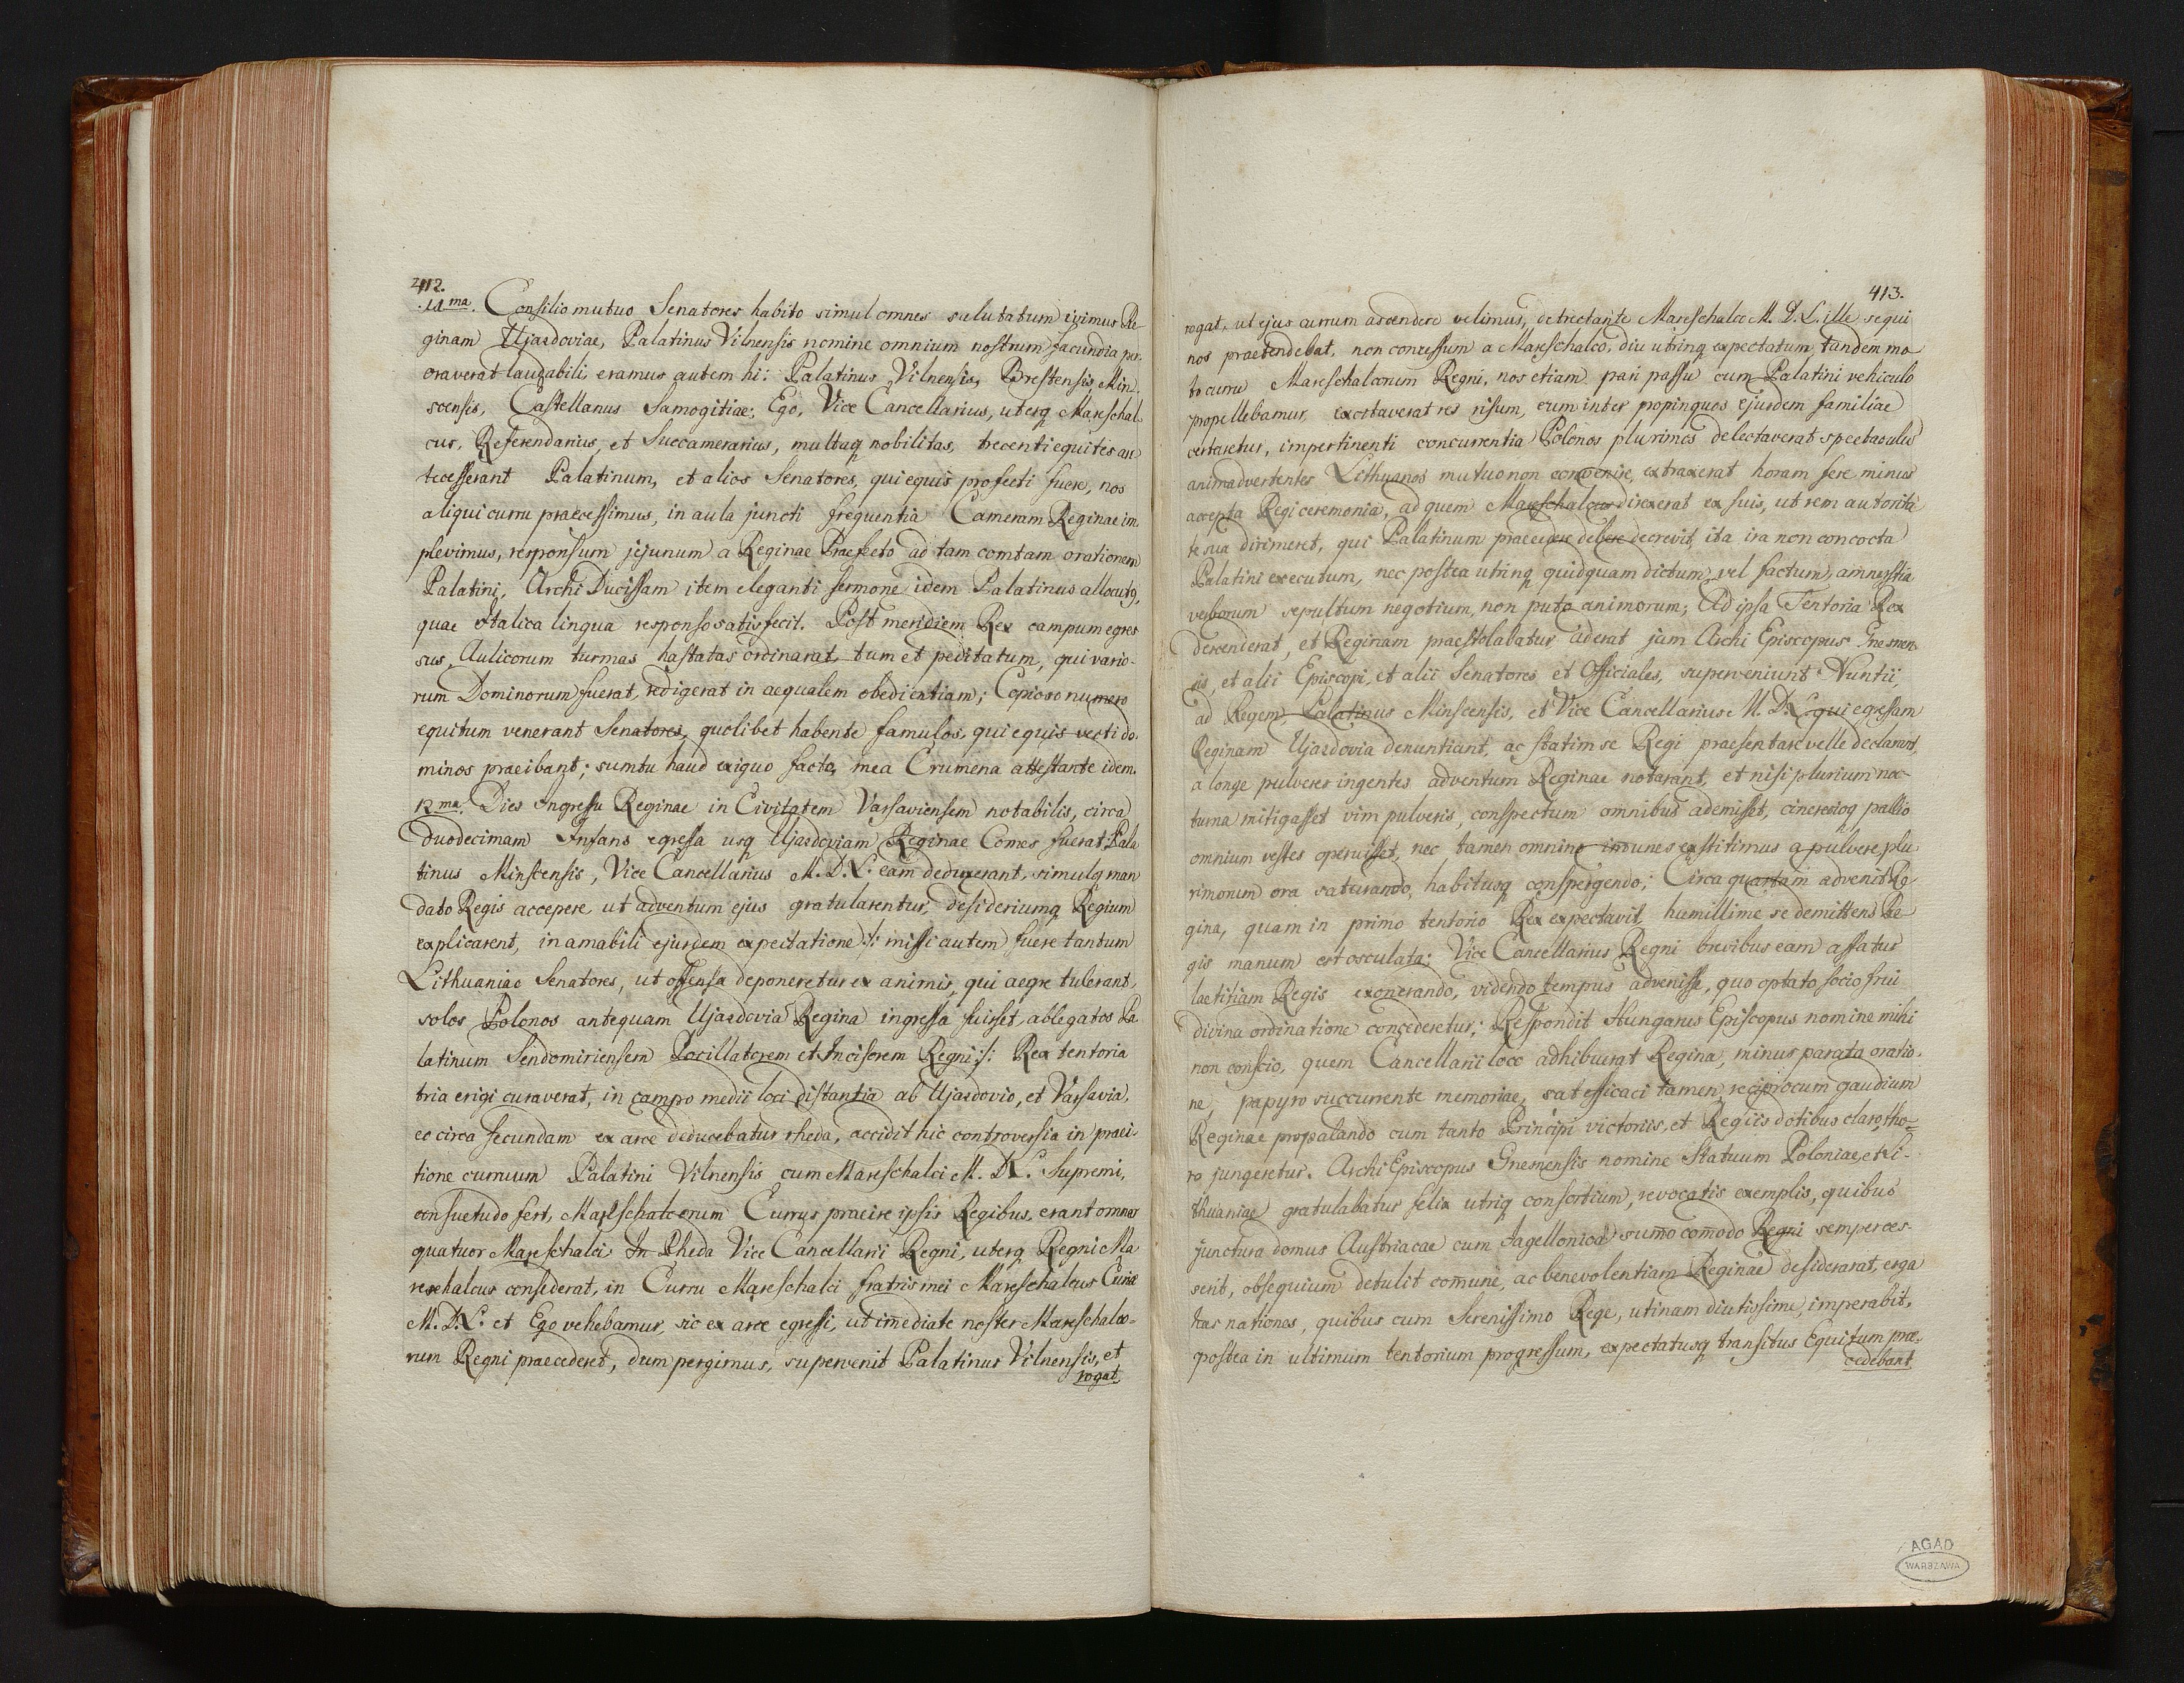 412.
11ma. Consilio mutuo Senatores habito simul omnes salutatum ivimus Re
ginam Ujazdoviae, Palatinus Vilnensis nomine omnium nostrum facundia per
oraverat laudabili, eramus autem hi: Palatinus Vilnensis, Brestensis, Min
scensis, Castellanus Samogitiae, Ego, Vice Cancellarius, uterq Mareschal
cus, Referendarius, et Succamerarius, multaq nobilitas, trecenti equites an
tecesserant Palatinum, et alios Senatores, qui equis profecti fuere, nos
aliqui curru praecessimus, in aula juncti frequentia Cameram Reginae im
plevimus, responsum jejunum a Reginae Praefecto ad tam comtam orationem
Palatini, Archi Ducissam item eleganti sermone idem Palatinus allocutq,
quae Italica lingua responso satisfecit. Post meridiem Rex campum egres
sus, Aulicorum turmas hastatas ordinarat, tum et peditatum, qui vario-
rum Dominorum fuerat, redigerat in aequalem obedientiam; Copioso numero
equitum venerant Senatores, quolibet habente famulos, qui equis vecti do.
minos praeibant; sumtu haud exiguo facto, mea Crumena attestante idem.
12ma. Dies ingressu Reginae in Civitatem Varsaviensem notabilis, circa
duodecimam Infans egressa usq Ujazdoviam Reginae Comes fuerat, Pala
tinus Minscensis, Vice Cancellarius M. D. L. eam deduxerant, simulq man
dato Regis accepere ut adventum ejus gratularentur, desideriumq Regium
explicarent, in amabili ejusdem expectatione :/: missi autem fuere tantum
Lithuaniae Senatores, ut offensa deponeretur ex animis, qui aegre tulerant,
solos Polonos antequam Ujazdovia Regina ingressa fuisset, ablegatos Pa
latinum Sendomiriensem Pocillatorem et Incisorem Regni :/: Rex tentoria
tria erigi curaverat, in campo medii loci distantia ab Ujazdovio, et Varsavia,
eo circa secundam ex arce deducebatur rheda, accidit hic controversia in praei-
tione curruum Palatini Vilnensis cum Mareschalci M. D. L. Supremi,
consuetudo fert, Mareschalcorum Currus praeire ipsis Regibus, erant omnes
quatuor Mareschalci. In Rheda Vice Cancellarii Regni, uterq Regni Ma
reschalcus considerat, in Curru Mareschalci fratris mei Mareschalcus Curiae
M. D. L. et Ego vehebamur, sic ex arce egressi, ut imediate noster Mareschalco-
rum Regni praecederet, dum pergimus, supervenit Palatinus Vilnensis, et
rogat,
413.
rogat, ut ejus currum ascendere velimus, detrectante Mareschalco M. D. L. ille sequi
nos praetendebat, non concessum a Mareschalco, diu utrinq expectatum, tandem mo
to curru Mareschalcorum Regni, nos etiam pari passu cum Palatini vehiculo
propellebamur, excitaverat res risum, cum inter propinquos ejusdem familiae
certaretur, impertinenti concurrentia Polonos plurimos delectaverat spectaculo
animadvertentes Lithuanos mutuo non convenire, extraxerat horam fere minus
accepta Regi ceremonia, ad quem Mareschalcus direxerat ex suis, ut rem autorita
te sua dirimeret, qui Palatinum praecedere debere decrevit, ita ira non concocta
Palatini executum, nec postea utrinq quidquam dictum, vel factum, amnestia
verborum sepultum negotium, non puto animorum; Ad ipsa Tentoria Rex
descenderat, et Reginam praestolabatur, aderat jam Archi Episcopus Gnesnen
sis, et alii Episcopi, et alii Senatores, et Officiales, superveniunt Nuntii,
ad Regem, Palatinus Minscensis, et Vice Cancellarius M. D. L. qui egressam
Reginam Ujazdovia denuntiant, ac statim se Regi praesentare velle declarant,
a longe pulveres ingentes adventum Reginae notarant, et nisi pluvium noc-
turna mitigasset vim pulveris, conspectum omnibus ademisset, cinereoq pallio
omnium vestes operuisset, nec tamen omnino imunes exstitimus a pulvere plu
rimorum ora saturando, habitusq conspergendo; Circa quartam advenit Re
gina, quam in primo tentorio Rex expectavit, humillime se demittens Re
gis manum est osculata: Vice Cancellarius Regni brevibus eam affatur
laetitiam Regis exonerando, videndo tempus advenisse, quo optato socio frui
divina ordinatione concederetur; Respondit Hungarus Episcopus nomine mihi
non conscio, quem Cancellarii loco adhibuerat Regina, minus parata oratio-
ne, papyro succurrente memoriae, sat efficaci tamen, reciprocum gaudium
Reginae propalando cum tanto Principi victoriis, et Regiis dotibus claro, tho=
ro jungeretur. Archi Episcopus Gnesnensis nomine Statuum Poloniae, et Li-
thuaniae gratulabatur felix utriq consortium, revocatis exemplis, quibus
junctura domus Austriacae cum Jagellonica sumo comodo Regni semper ces
serit, obsequium detulit comune, ac benevolentiam Reginae desiderarat, erga
has nationes, quibus cum Serenissimo Rege, utinam diutissime, imperabit,
postea in ultimum tentorium progressum, expectatusq transitus Equitum prae-
cedebant
AGAD
WARSZAWA